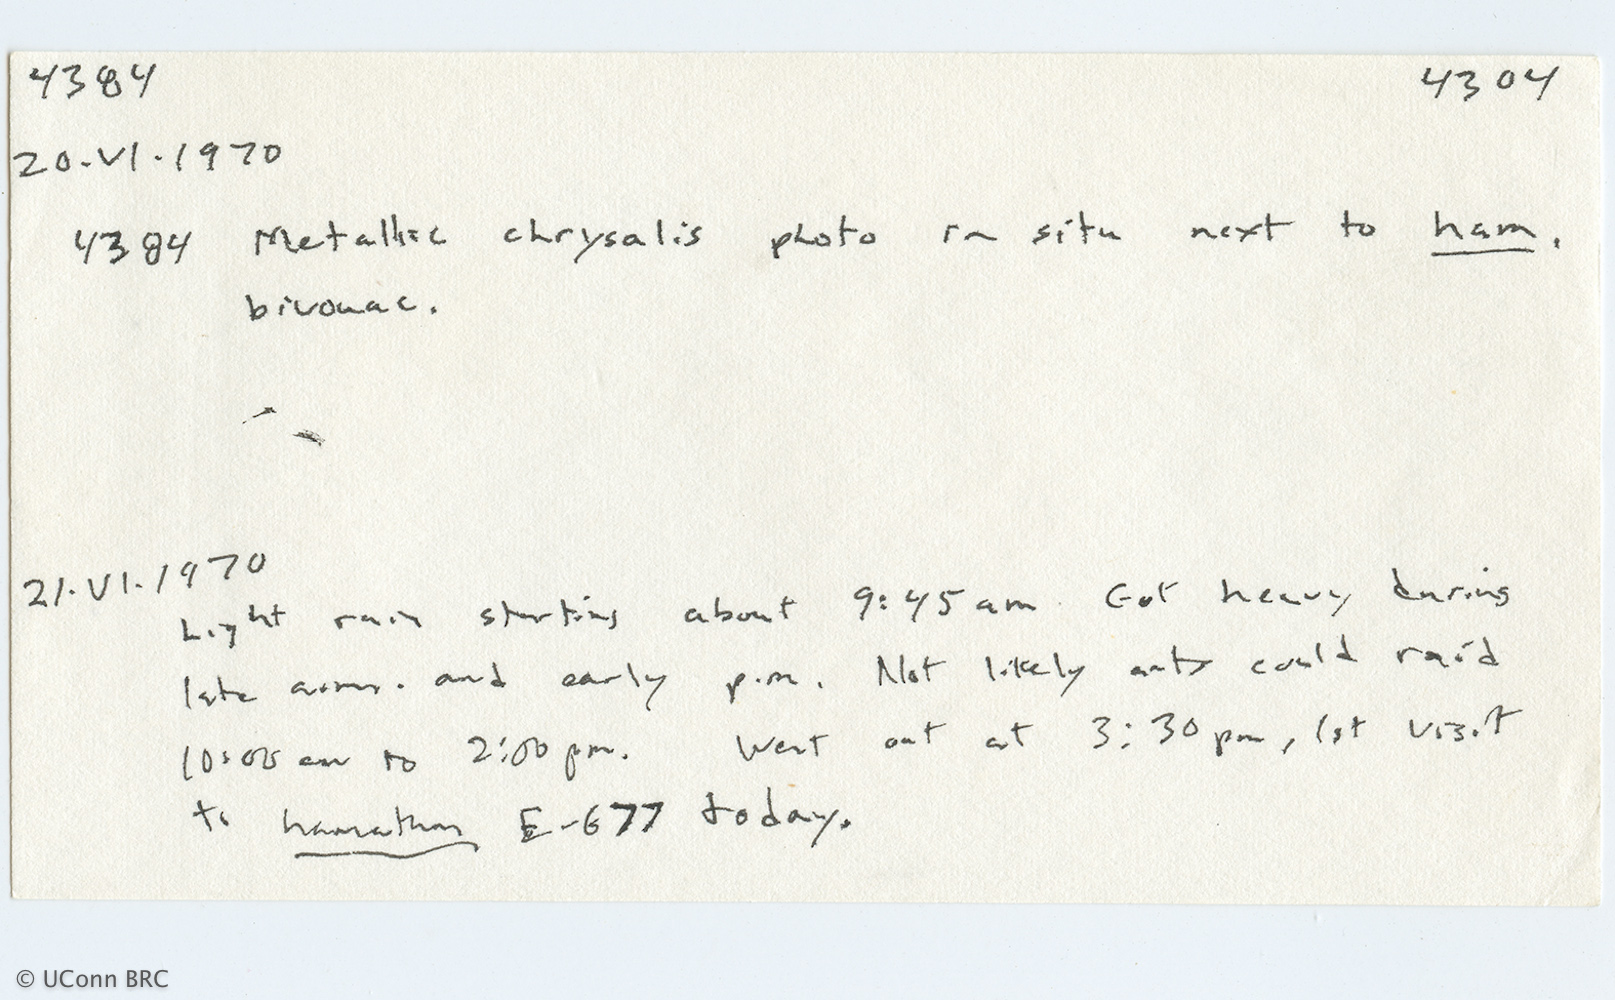 4384 4304
20.VI.1970
4384 Metallic chrysalis photo in situ next to ham.
bivouac.
21.VI.1970
Light rain starting about 9:45 am. Got heavy during
late a.m. and early p.m. Not likely ants could raid
10:00 am to 2:00 pm. Went out at 3:30 pm, 1st visit
to hamatum E-677 today.
© UConn BRC